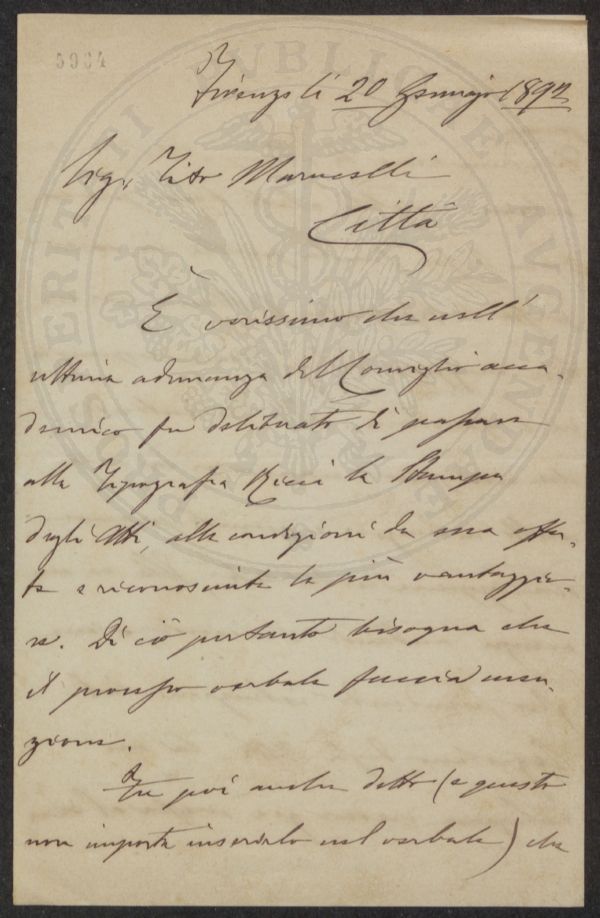 5964
Firenze li 20 Gennajo 1892
Sig. Tito Marucelli
Città
È verissimo che nell'
ultima adunanza del Consiglio acca-
demico fu deliberato di passare
alla Tipografia Ricci la Stampa
degli Atti, alle condizioni da essa offer-
te e riconosciute le più vantaggio-
se. Di ciò pertanto bisogna che
il processo verbale faccia men-
zione.
Fu poi anche detto (e questo
non importa inserirlo nel verbale) che
PROSPERITATI PUBLICAE AUGENDAE